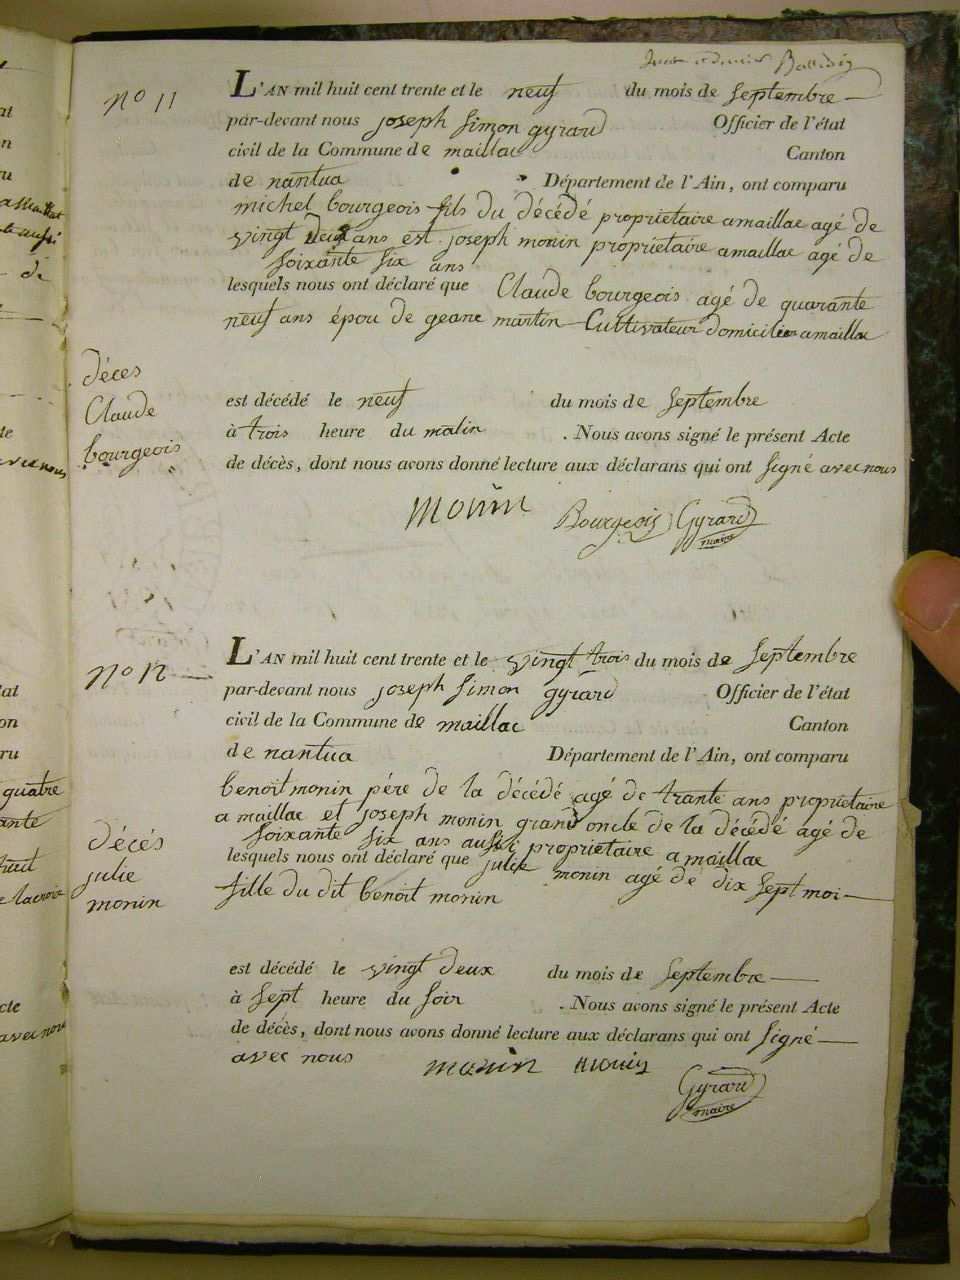 no 11
L'AN mil huit cent trente et le neuf du mois de septembre
par-devant nous joseph simon gyrard Officier de l'état
civil de la Commune de maillac Canton
de nantua Département de l'Ain, ont comparu
michel bourgeois fils du décédé proprietaire a maillac agé de
vingt deux ans est joseph monin proprietaire a maillac agé de
soixante six ans
lesquels nous ont déclaré que Claude bourgeois agé de quarante
neuf ans épou de geane martin Cultivateur domicilier a maillac
déces
Claude
bourgeois
est décédé le neuf du mois de septembre
à trois heure du matin . Nous avons signé le présent Acte
de décès, dont nous avons donné lecture aux déclarans qui ont signé avec nous
Monin Bourgeois Gyrard
maire
no 12
L'AN mil huit cent trente et le vingt trois du mois de septembre
par-devant nous joseph simon gyrard Officier de l'état
civil de la Commune de maillac Canton
de nantua Département de l'Ain, ont comparu
benoit monin pére de la décédé agé de trante ans proprietaire
a maillac et joseph monin grand oncle de la décédé agé de
soixante six ans aussi proprietaire a maillac
lesquels nous ont déclaré que julie monin agé de dix sept moi
fille du dit benoit monin
décés
julie
monin
est décédé le vingt deux du mois de septembre
à sept heure du soir . Nous avons signé le présent Acte
de décès, dont nous avons donné lecture aux déclarans qui ont signé
avec nous monin monin
Gyrard
maire